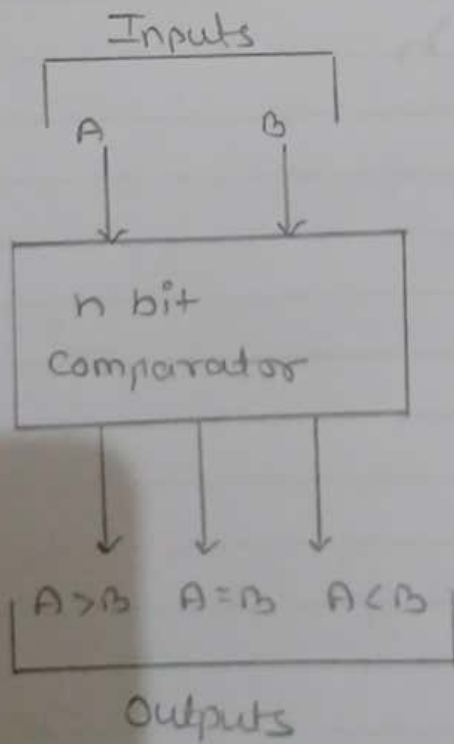 Inputs
A B
n bit
comparator
A>B A=B A<B
Outputs